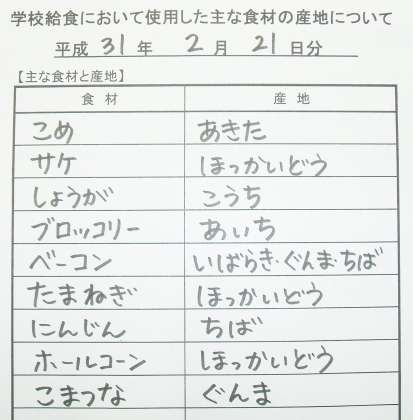 学校給食において使用した主な食材の産地について
平成 31 年 2 月 21 日分
【主な食材と産地】
食材 産地
こめ あきた
サケ ほっかいどう
しょうが こうち
ブロッコリー あいち
ベーコン いばらき・ぐんま・ちば
たまねぎ ほっかいどう
にんじん ちば
ホールコーン ほっかいどう
こまつな ぐんま